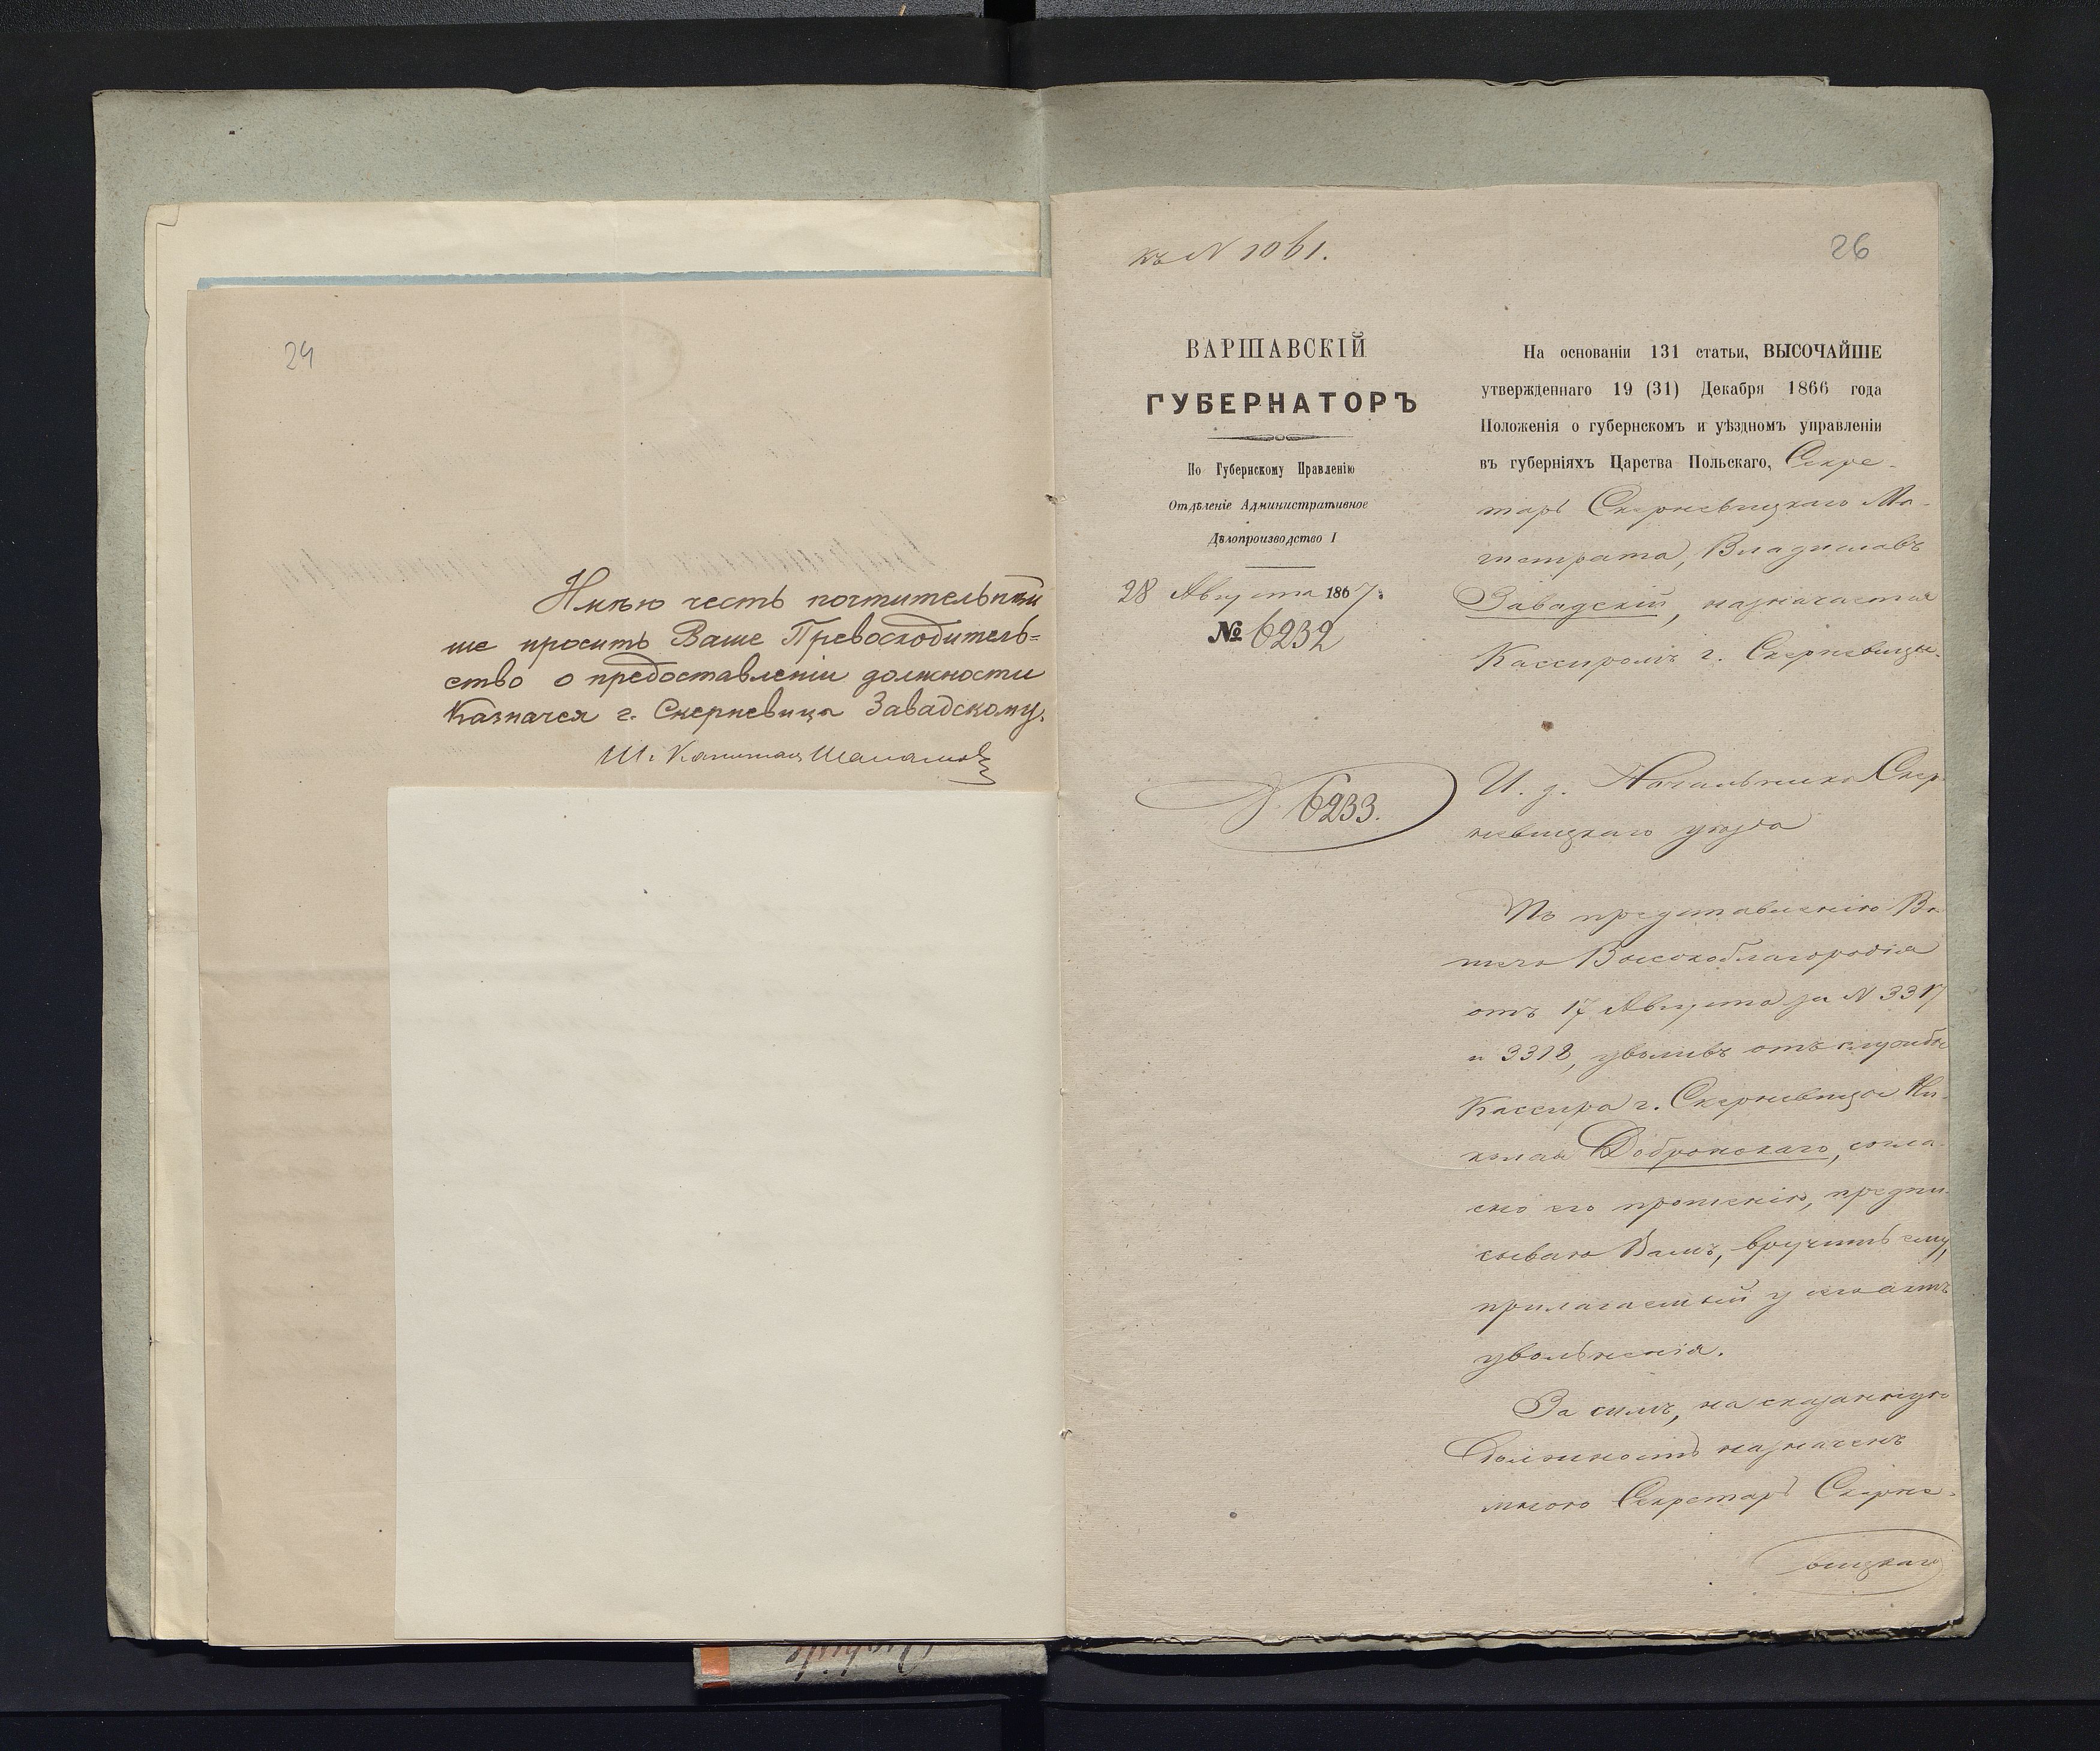 24
Имѣю честь почтительнѣй
ше просить Ваше Превосходитель=
ство о предоставленіи должности
Казначея г. Скерневица Завадскому.
Ш. Капитан
къ N 1061.
26
ВАРШАВСКІЙ
ГУБЕРНАТОРЪ
По Губернскому Правленію
Отдѣленіе Административное
Дѣлопроизводство I
28 Августа 1867.
№ 6232
6233.
На основаніи 131 статьи, ВЫСОЧАЙШЕ
утвержденнаго 19 (31) Декабря 1866 года
Положенія о губернскомъ и уѣздномъ управленіи
въ губерніяхъ Царства Польскаго, Секре-
тарь Скерневицкаго Ма-
гистрата, Владиславъ
Завадскій, назначается
Кассиромъ г. Скерневицы.
И. д. Начальника Скер-
невицкаго уѣзда
По представленію Ва-
шего Высокоблагородія
отъ 17 Августа за N 3317
и 3318, уволивъ отъ службы
Кассира г. Скерневицы Ни-
колая Добронскаго, согла-
сно его прошенію, предпи-
сываю Вамъ, вручить ему,
прилагаемый у сего актъ
увольненія.
За симъ, на сказанную
должность назначенъ
мною Секретарь Скерне-
вицкаго